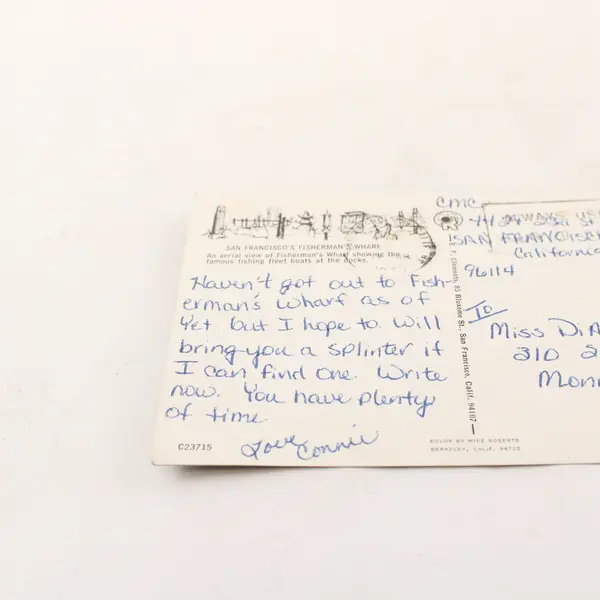 SAN FRANCISCO'S FISHERMAN'S WHARF
An aerial view of Fisherman's Wharf showing the
famous fishing fleet boats at the docks.
Haven't got out to Fish-
erman's Wharf as of
Yet but I hope to. Will
bring you a splinter if
I can find one. Write
now. You have plenty
of time.
Love
Connie
C23715
Clements, 85 Bluxome St., San Francisco, Calif. 94107
CMC
ALWAYS USE
SAN FRANCISC
California
96114
To
Miss
310
Monr
COLOR BY MIKE ROBERTS
BERKELEY, CALIF. 94710